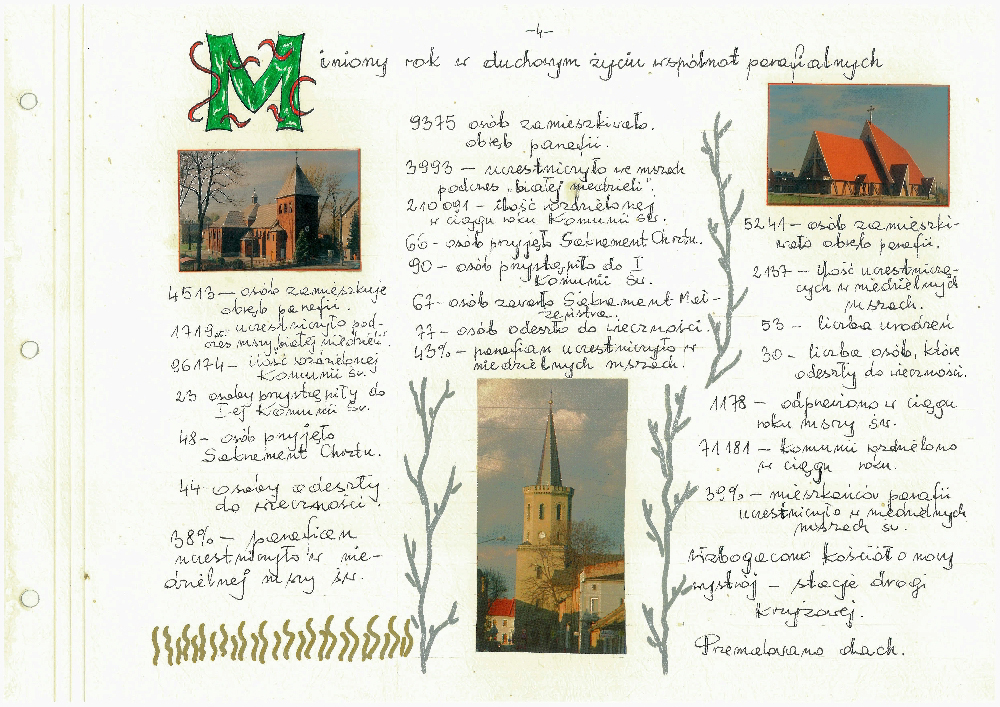 -4-
Miniony rok w duchowym życiu wspólnot parafialnych
4513 - osób zamieszkuje
obręb parafii.
1719 os. uczestniczyło pod-
czas mszy "białej niedzieli".
96174 - ilość rozdzielonej
Komunii św.
23 osoby przystąpiły do
I-ej Komunii Św.
48 - osób przyjęło
Sakrament Chrztu.
44 osoby odeszły
do wieczności.
38% - parafian
uczestniczyło w nie-
dzielnej mszy św.
9375 osób zamieszkiwało
obręb parafii.
3993 - uczestniczyło we mszach
podczas "białej niedzieli".
210'091 - ilość rozdzielonej
w ciągu roku Komunii św.
66 - osób przyjęło Sakrament Chrztu.
90 - osób przystąpiło do I
Komunii Św.
67 - osób zawarło Sakrament Mał-
żeństwa.
77 - osób odeszło do wieczności.
43% - parafian uczestniczyło w
niedzielnych mszach.
5241 - osób zamieszki-
wało obręb parafii.
2137 - ilość uczestniczą-
cych w niedzielnych
mszach.
53 - liczba urodzeń
30 - liczba osób, które
odeszły do wieczności.
1178 - odprawiono w ciągu
roku mszy św.
71181 - Komunii rozdzielono
w ciągu roku.
39% - mieszkańców parafii
uczestniczyło w niedzielnych
mszach św.
Wzbogacono kościół o nowy
wystrój - stacje drogi
krzyżowej.
Przemalowano dach.